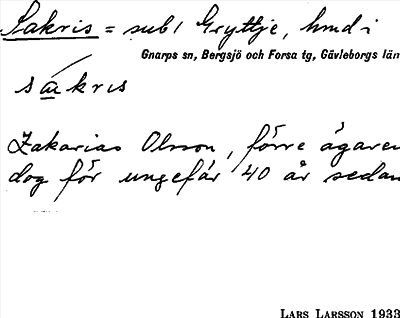 Sakris = sub 1 Gryttje, hmd i
Gnarps sn, Bergsjö och Forsa tg, Gävleborgs län
sakris
Zakarias Olsson, förre ägaren
dog för ungefär 40 år sedan
LARS LARSSON 1933